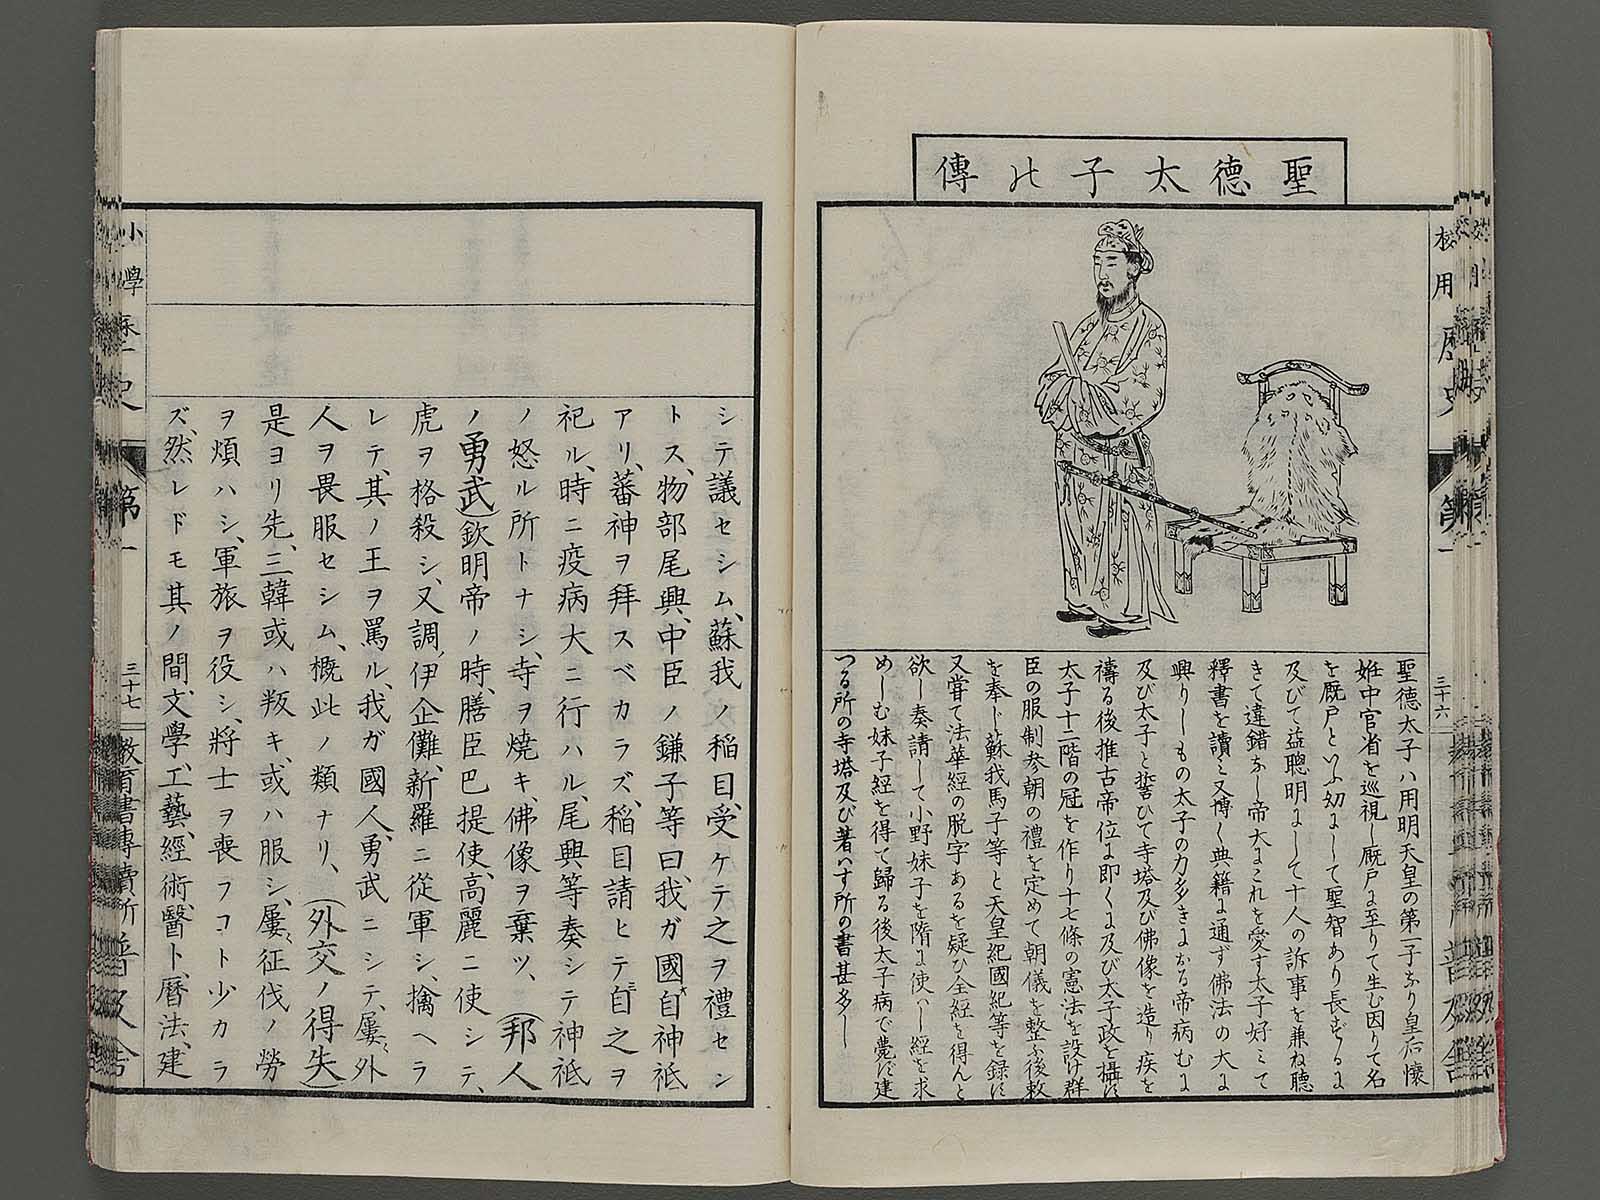 聖德太子の傳
校用歷史
第一
三十六
普及舍
聖德太子ハ用明天皇の第二子なり皇后懷
姙中官省を巡視し厩戸に至りて生む因りて名
を厩戸といふ幼にして聖智あり長ずるに
及びて益聰明にして十人の訴事を兼ね聽
きて違錯なし帝大にこれを愛す太子好ミて
釋書を讀ミ又博く典籍に通ず佛法の大に
興りしもの太子の力多きにかる帝病むに
及び太子と誓ひて寺塔及び佛像を造り疾を
禱る後推古帝位に即くに及び太子政を攝す
太子十二階の冠を作り十七條の憲法を設け群
臣の服制叅朝の禮を定めて朝儀を整ふ後敕
を奉じ蘇我馬子等と天皇紀國紀等を録す
又甞て法華經の脱字あるを疑ひ全經を得んと
欲し奏請して小野妹子を隋に使ハし經を求
めしむ妹子經を得て歸る後太子病で薨ず建
つる所の寺塔及び著ハす所の書甚多し
シテ議セシム、蘇我ノ稻目、受ケテ之ヲ禮セン
トス、物部尾興、中臣ノ鎌子等曰、我ガ國自神祇
アリ、蕃神ヲ拜スベカラズ、稻目請ヒテ自之ヲ
祀ル、時ニ疫病大ニ行ハル、尾興等奏シテ神祇
ノ怒ル所トナシ、寺ヲ燒キ、佛像ヲ棄ツ、（邦人
ノ勇武）欽明帝ノ時、膳臣巴提使、高麗ニ使シテ、
虎ヲ格殺シ、又調伊企儺、新羅ニ從軍シ、擒ヘラ
レテ、其ノ王ヲ罵ル、我ガ國人、勇武ニシテ、屢外
人ヲ畏服セシム、概此ノ類ナリ、（外交ノ得失）
是ヨリ先、三韓或ハ叛キ、或ハ服シ、屢征伐ノ勞
ヲ煩ハシ、軍旅ヲ役シ、將士ヲ喪フコト少カラ
ズ、然レドモ其ノ間、文學、工藝、經術、醫卜、曆法、建
小學
史
第一
三十七
教育書專賣所普及舍